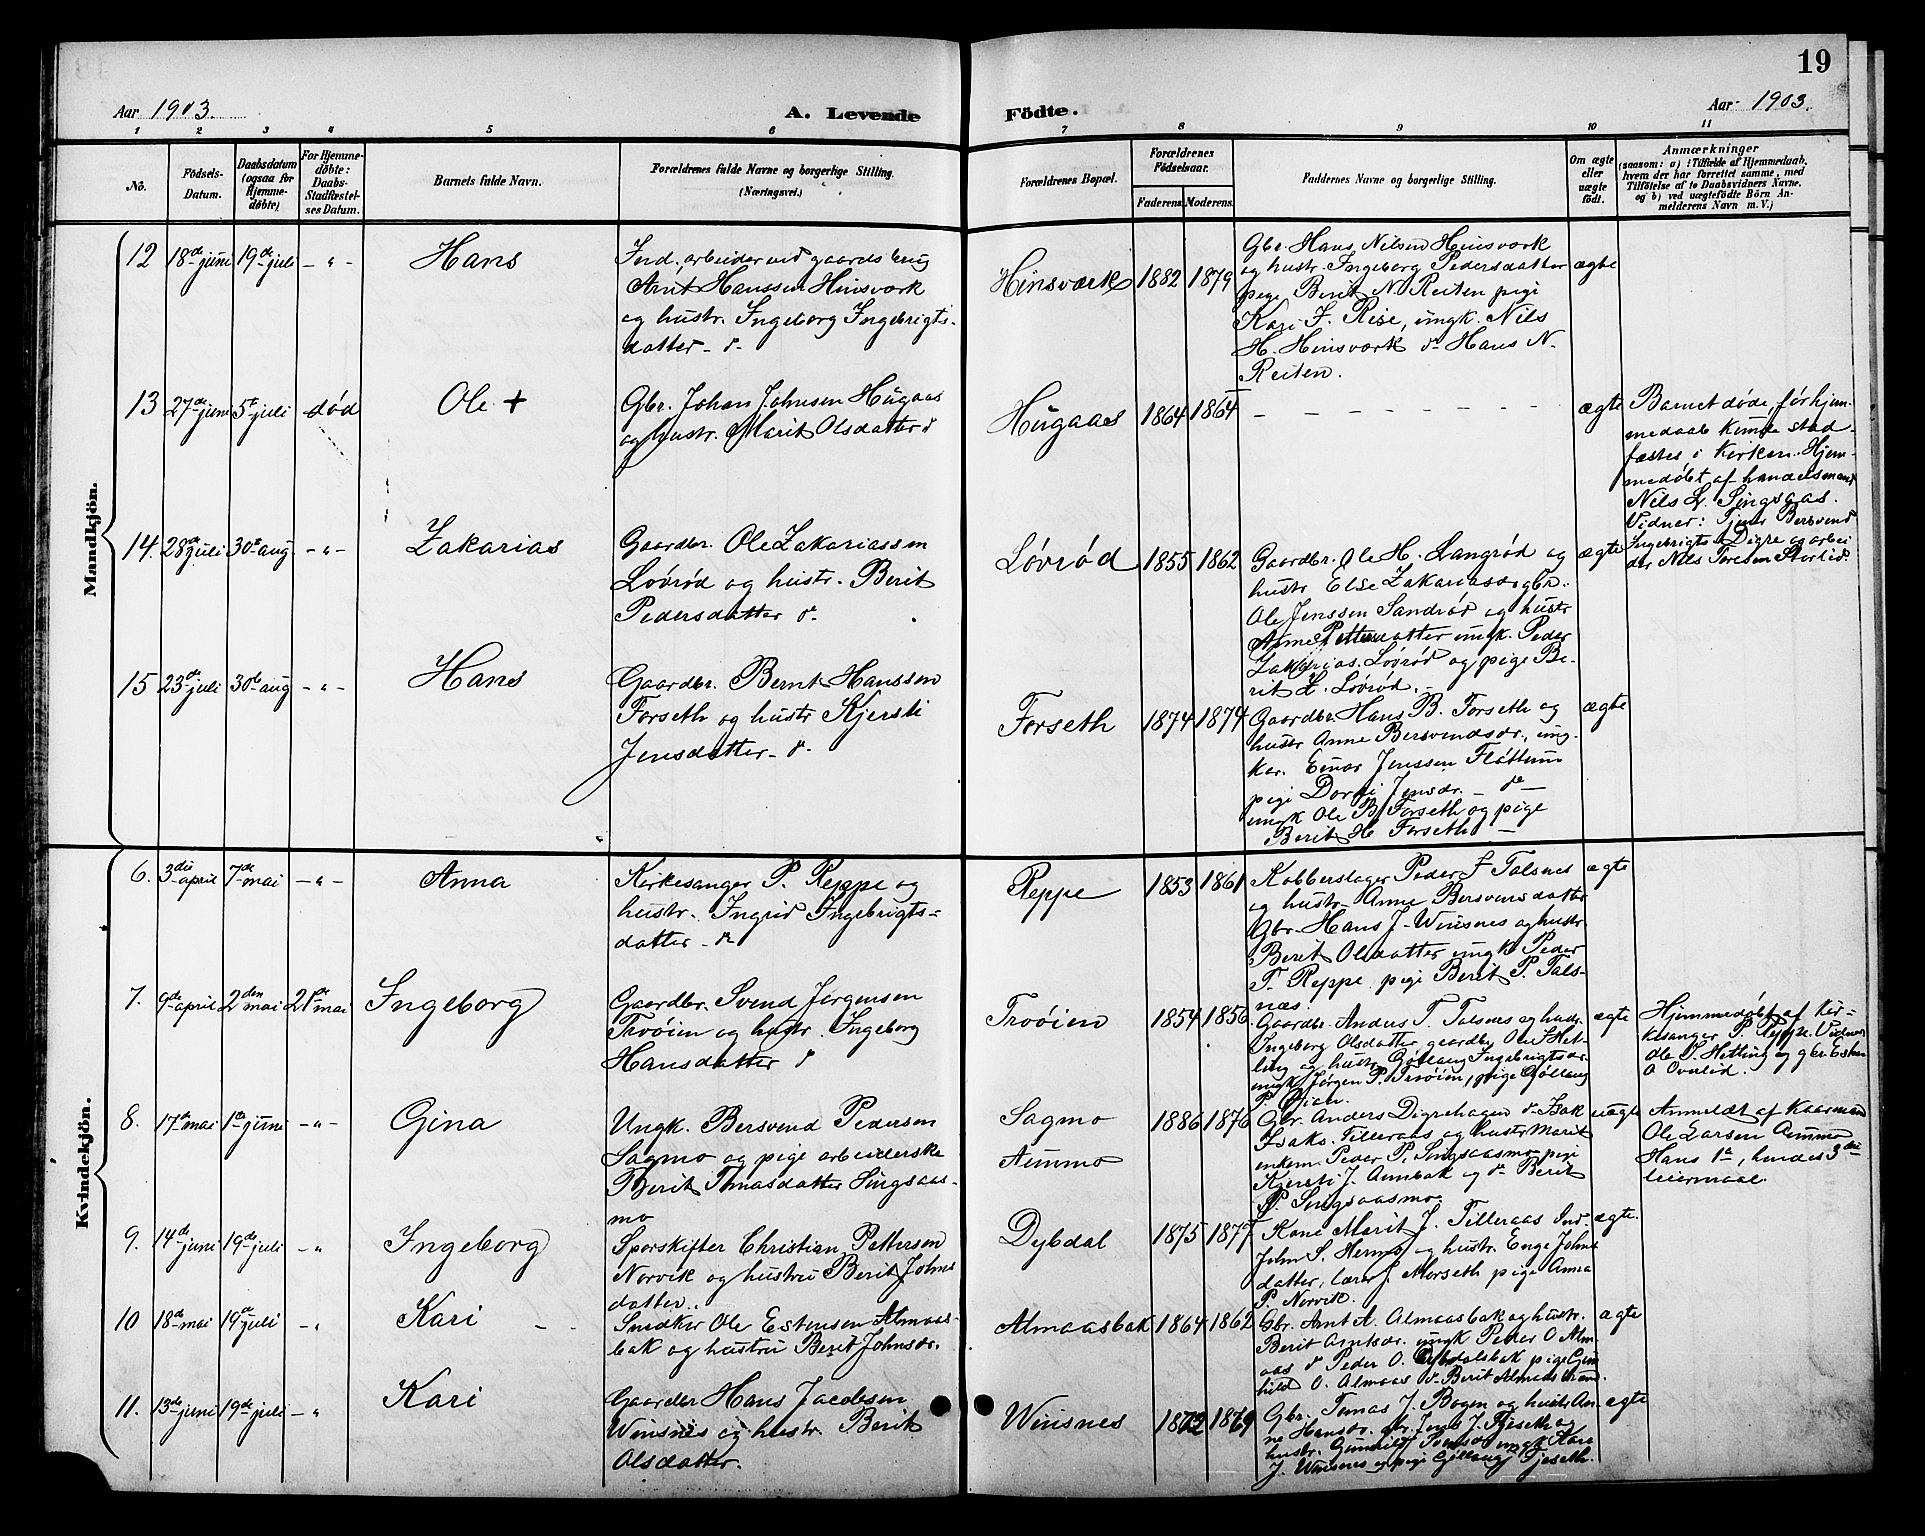 19
Aar 1903.
A. Levende
Födte.
Aar 1903.
1 2 3 4 5 6 7 8 9 10 11
No.
Födsels-
Datum.
Daabsdatum
(ogsaa for
Hjemme-
döbte)
For Hjemme-
döbte:
Daabs-
Stadfæstel-
ses Datum.
Barnets fulde Navn.
Forældrenes fulde Navne og borgerlige Stilling.
(Næringsvei.)
Forældrenes Bopæl.
Forældrenes
Födselsaar.
Faderens. Moderens.
Faddernes Navne og borgerlige Stilling.
Om ægte
eller
uægte
født.
Anmærkninger
(saasom: a) i Tilfælde af Hjemmedaab,
hvem der har forrettet samme, med
Tilföielse af to Daabsvidners Navne.
og b) ved uægtefödte Börn An-
melderens Navn m. V.)
Mandkjön.
12 18de juni 19de juli - " - Hans
Ind. arbeider ved gaards brug
Arnt Hanssen Hinsværk
og hustr. Ingeborg Ingebrigts-
datter - d.
Hinsværk 1882 1879
Gbr. Hans Nilsen Hinsværk
og hustr. Ingeborg Pedersdatter
pige Berit N. Reiten pige
Kari J. Rise, ungk. Nils
H. Hinsværk do Hans N.
Reiten.
ægte
13 27de juni 5te juli død Ole +
Gbr. Johan Johnsen Hugaas
og hustr. Marit Olsdatter d
Hugaas 1864 1864 - - - - - - - - ægte
Barnet døde, før hjem-
medaab kunde stad-
fæstes i Kirken. Hjem-
medøbt af handelsmand
Nils L. Singsaas.
Vidner: Tjener Bersvend
Ingebrigts. Digre og arbei
der Nils Toresen Storlid.
14. 28de juli 30te aug - " - Zakarias
Gaardbr. Ole Zakariassen
Løvrød og hustr. Berit
Pedersdatter d.
Løvrød 1855 1862
Gaardbr. Ole H. Langrød og
hustr Else Zakariasd. gbr.
Ole Jenssen Sandrød og hustr
Anne Pettersdatter ungk. Peder
Zakarias. Løvrød og pige Be-
rit Z. Løvrød. -
ægte
15 23de juli 30te aug - " - Hans
Gaardbr. Bernt Hanssen
Forseth og hustr Kjersti
Jensdatter - d.
Forseth 1874 1874
Gaardbr. Hans B. Forseth og
hustr Anne Bersvendsdr., ung-
kar. Einar Jenssen Fløttum
pige Dorthi Jensdr. - do -
ungk Ole B. Forseth og pige
Berit H Forseth -
ægte
Kvindekjön.
6. 3die april 7de mai - " - Anna
Kirkesanger P. Reppe og
hustr. Ingrid Ingebrigts-
datter - d.
Reppe 1853 1861
Kobberslager Peder J Talsnes
og hustr. Anne Bersvensdatter
Gbr. Hans J. Winsnes og hustr.
Berit Olsdatter ungk Peder
T. Reppe pige Berit P. Tals-
næs.
ægte
7. 9de april 2den mai 21de mai Ingeborg
Gaardbr. Svend Jørgensen
Trøøien og hustr. Ingeborg
Hansdatter d
Trøøien 1854 1856
Gaardbr. Anders T. Talsnes og hustr.
Ingeborg Olsdatter, gaardbr Ole S Het-
ling og hustr Gøllaug Ingebrigtsdr.
ungk Jørgen P. Trøøien, pige Gjøllaug
P.
ægte
Hjemmedøbt af Kir-
kesanger P. Reppe. Vidner
Ole S. Hetling og gbr Esten
O Overlid.
8. 17de mai 1ste juni - " - Gina
Ungk. Bersvend Pedersen
Sagmo og pige arbeiderske
Berit Tomasdatter Singsaas-
mo
Sagmo
Aunmo
1886 1876
Gbr. Anders Digrehagen do Isak
Isaks. Tilleraas og hustr Marit
enkem. Peder P. Singsaasmo pige
Kjersti J. Aunbak og do Berit
P. Singsaasmo.
uægte
Anmeldt af Kaarmand
Ole Larsen Aunmo
Hans 1ste, hendes 3die
leiermaal.
9. 14de juni 19de juli - " Ingeborg
Sporskifter Christian Pettersen
Norvik og hustru Berit Johns
datter.
Dybdal 1875 1877
Kone Marit J. Tilleraas Ind.
John S. Hermo og hustr. Enge Johns
datter, lærer J. Morseth pige Anna
P. Norvik.
ægte.
10 18de mai 19de juli - " Kari - -
Snedker Ole Estensen Almaas-
bak og hustru Berit Johnsdr.
Almaasbak 1864 1862
Gbr. Arnt A. Almaasbak og hustr.
Berit Arntsdr. ungk Peder O Alm-
aas do Peder O. Dybdalsbak pige Gun
hild O. Almaas do Berit
ægte
11. 13de juni 19de juli - " Kari
Gaardbr Hans Jacobsen
Winsnes og hustr. Berit
Olsdatter.
Winsnes 1872 1879
Gbr. Tomas J. Bogen og hustr An-
ne Hansdr. gbr. Jens J. Fjeseth og
hustr. Gunhild Svensdr ungk Kare
J. Winsnes og pige Gjøllaug Fjeseth.
ægte